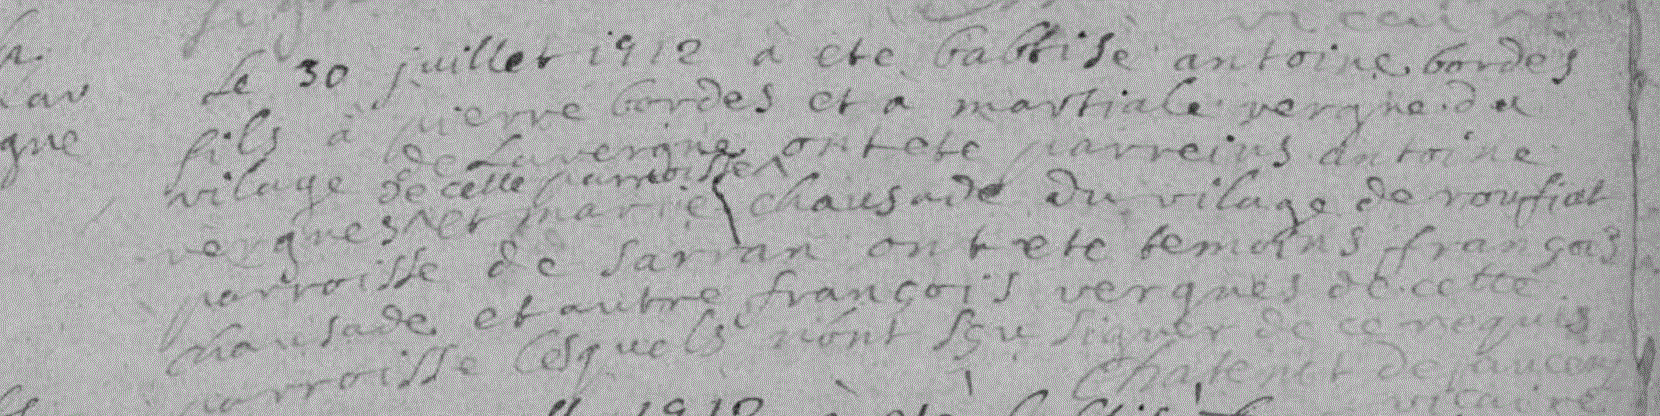 vicaire
le 30 juillet 1712 à ete babtisé antoine bordes
fils à pierre bordes et a martiale vergne du
vilage de Lavergne ont ete parreins antoine
de cette parroisse
vergnes ^ et marie chausade du vilage de roufiat
parroisse de sarran ont ete temoins françois
chausade et autre françois vergnes de cette
parroisse lesquels n'ont sçu signer de ce requis
Chatenet de
vicaire